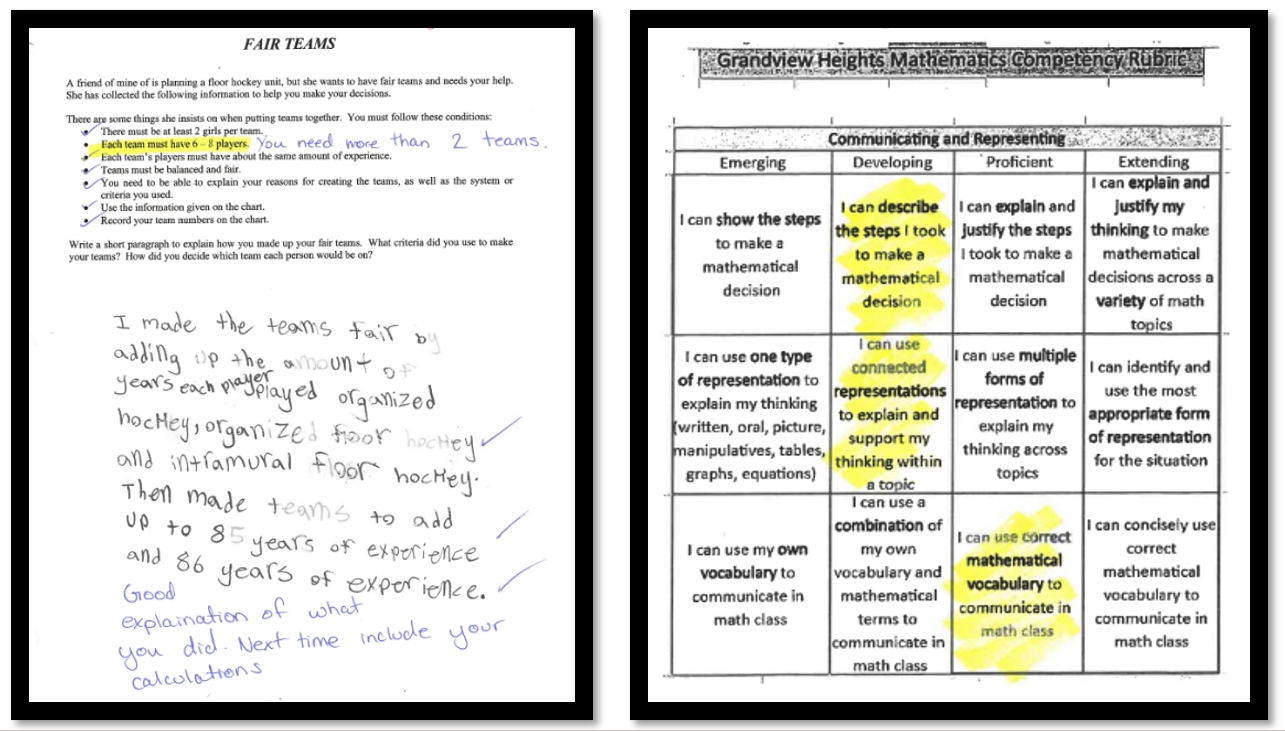 FAIR TEAMS
A friend of mine of is planning a floor hockey unit, but she wants to have fair teams and needs your help.
She has collected the following information to help you make your decisions.
There are some things she insists on when putting teams together. You must follow these conditions:
There must be at least 2 girls per team.
Each team must have 6 – 8 players. You need more than 2 teams.
Each team's players must have about the same amount of experience.
Teams must be balanced and fair.
You need to be able to explain your reasons for creating the teams, as well as the system or
criteria you used.
Use the information given on the chart.
Record your team numbers on the chart.
Write a short paragraph to explain how you made up your fair teams. What criteria did you use to make
your teams? How did you decide which team each person would be on?
I made the teams fair by
adding up the amount of
years each player played organized
hocKey, organized floor hocKey
and intramural floor hocKey.
Then made teams to add
up to 85 years of experience
and 86 years of experience.
Good
explaination of what
you did. Next time include your
calculations
Grandview Heights Mathematics Competency Rubric
Communicating and Representing
Emerging
Developing
Proficient
Extending
I can show the steps
to make a
mathematical
decision
I can describe
the steps I took
to make a
mathematical
decision
I can explain and
justify the steps
I took to make a
mathematical
decision
I can explain and
justify my
thinking to make
mathematical
decisions across a
variety of math
topics
I can use one type
of representation to
explain my thinking
(written, oral, picture,
manipulatives, tables,
graphs, equations)
I can use
connected
representations
to explain and
support my
thinking within
a topic
I can use multiple
forms of
representation to
explain my
thinking across
topics
I can identify and
use the most
appropriate form
of representation
for the situation
I can use my own
vocabulary to
communicate in
math class
I can use a
combination of
my own
vocabulary and
mathematical
terms to
communicate in
math class
I can use correct
mathematical
vocabulary to
communicate in
math class
I can concisely use
correct
mathematical
vocabulary to
communicate in
math class